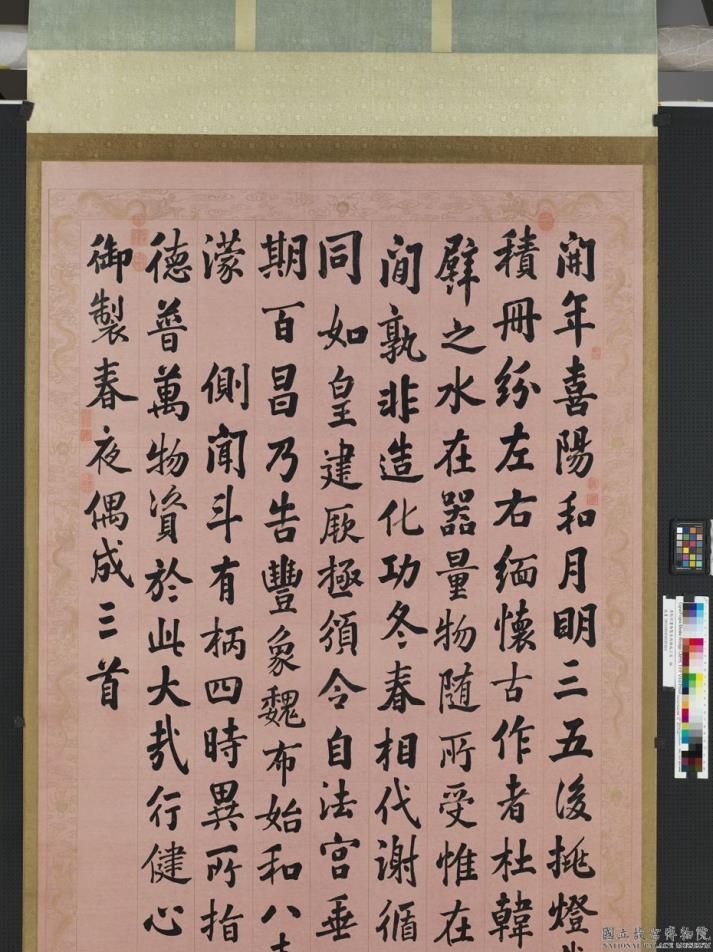 開年喜陽和月明三五後挑燈
積冊紛左右緬懷古作者杜韓
譬之水在器量物随所受惟在
間孰非造化功冬春相代谢循
同如皇建厥極頒令自法宮垂
期百昌乃告豐象魏布始和八
濛 側聞斗有柄四時異所指
德普萬物資於此大哉行健心
御製春夜偶成三首
國立故宮博物院
NATIONAL PALACE MUSEUM